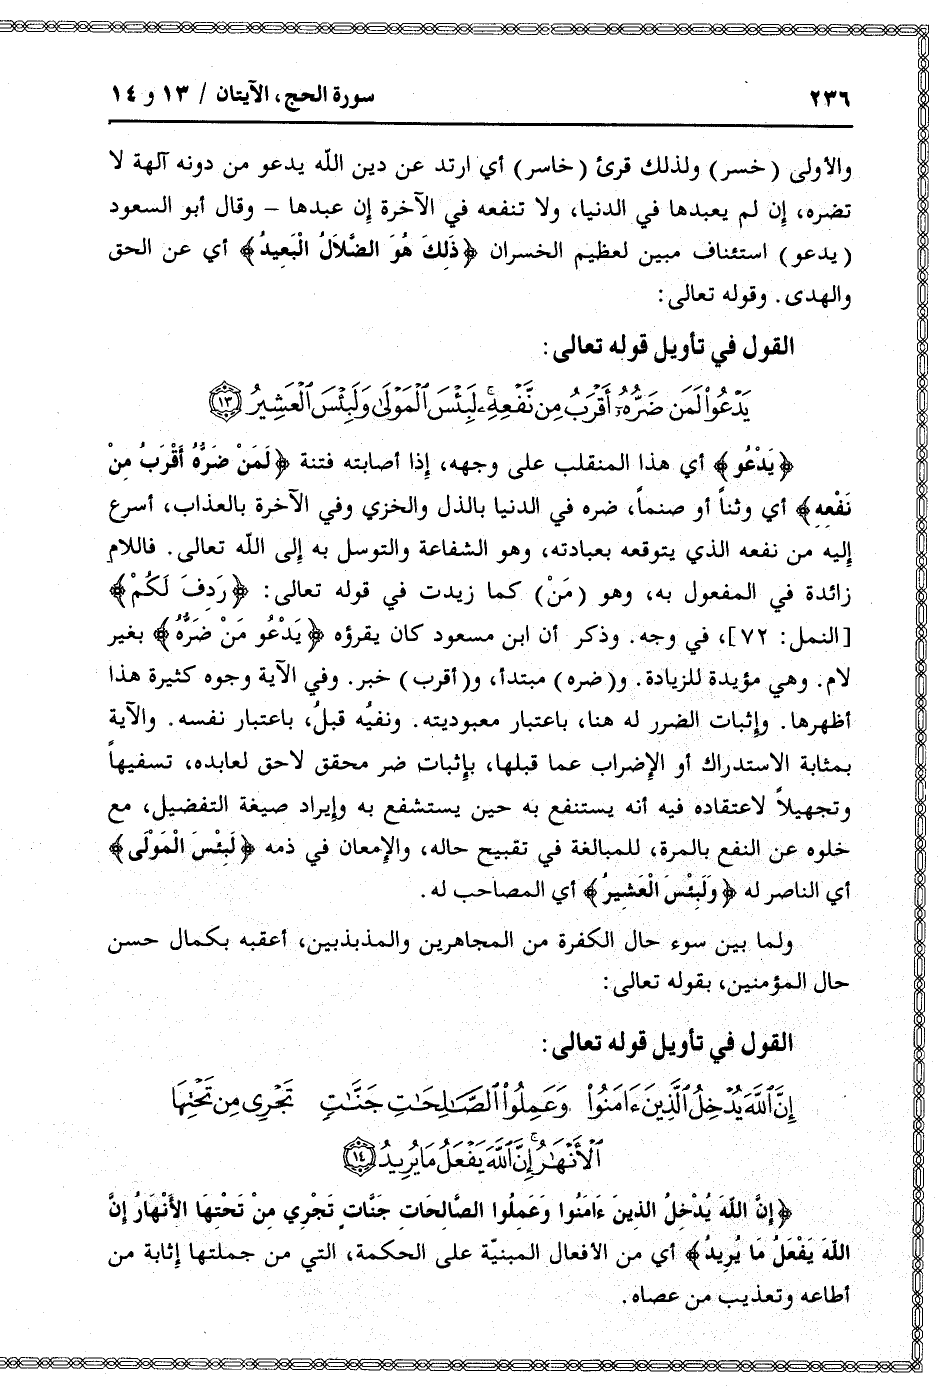 ٢٣٦ سورة الحج، الآيتان / ١٣ و ١٤
والأولى (خسر) ولذلك قرئ (خاسر) أي ارتد عن دين الله يدعو من دونه آلهة لا
تضره، إن لم يعبدها في الدنيا، ولا تنفعه في الآخرة إن عبدها – وقال أبو السعود
(يدعو) استئناف مبين لعظيم الخسران ﴿ذَلِكَ هُوَ الضَّلاَلُ الْبَعِيدُ﴾ أي عن الحق
والهدى. وقوله تعالى:
القول في تأويل قوله تعالى:
يَدْعُوا۟ لَمَن ضَرُّهُۥٓ أَقْرَبُ مِن نَّفْعِهِۦ ۚ لَبِئْسَ ٱلْمَوْلَىٰ وَلَبِئْسَ ٱلْعَشِيرُ ١٣
﴿يَدْعُو﴾ أي هذا المنقلب على وجهه، إذا أصابته فتنة ﴿لَمَنْ ضَرُّهُ أَقْرَبُ مِنْ
نَفْعِهِ﴾ أي وثناً أو صنماً، ضره في الدنيا بالذل والخزي وفي الآخرة بالعذاب، أسرع
إليه من نفعه الذي يتوقعه بعبادته، وهو الشفاعة والتوسل به إلى الله تعالى. فاللام
زائدة في المفعول به، وهو (مَنْ) كما زيدت في قوله تعالى: ﴿رَدِفَ لَكُمْ﴾
[النمل: ٧٢]، في وجه. وذكر أن ابن مسعود كان يقرؤه ﴿يَدْعُو مَنْ ضَرُّهُ﴾ بغير
لام. وهي مؤيدة للزيادة. و(ضره) مبتدأ، و(أقرب) خبر. وفي الآية وجوه كثيرة هذا
أظهرها. وإثبات الضرر له هنا، باعتبار معبوديته. ونفيُه قبلُ، باعتبار نفسه. والآية
بمثابة الاستدراك أو الإضراب عما قبلها، بإثبات ضر محقق لاحق لعابده، تسفيهاً
وتجهيلاً لاعتقاده فيه أنه يستنفع به حين يستشفع به وإيراد صيغة التفضيل، مع
خلوه عن النفع بالمرة، للمبالغة في تقبيح حاله، والإمعان في ذمه ﴿لَبِئْسَ الْمَوْلَى﴾
أي الناصر له ﴿وَلَبِئْسَ الْعَشِيرُ﴾ أي المصاحب له.
ولما بين سوء حال الكفرة من المجاهرين والمذبذبين، أعقبه بكمال حسن
حال المؤمنين، بقوله تعالى:
القول في تأويل قوله تعالى:
إِنَّ ٱللَّهَ يُدْخِلُ ٱلَّذِينَ ءَامَنُوا۟ وَعَمِلُوا۟ ٱلصَّٰلِحَٰتِ جَنَّٰتٍ تَجْرِى مِن تَحْتِهَا
ٱلْأَنْهَٰرُ ۚ إِنَّ ٱللَّهَ يَفْعَلُ مَا يُرِيدُ ١٤
﴿إِنَّ اللَّهَ يُدْخِلُ الذينَ ءَامَنُوا وَعَمِلُوا الصَّالِحَاتِ جَنَّاتٍ تَجْرِي مِنْ تَحْتِهَا الأَنْهَارُ إِنَّ
اللَّهَ يَفْعَلُ مَا يُرِيدُ﴾ أي من الأفعال المبنيّة على الحكمة، التي من جملتها إثابة من
أطاعه وتعذيب من عصاه.